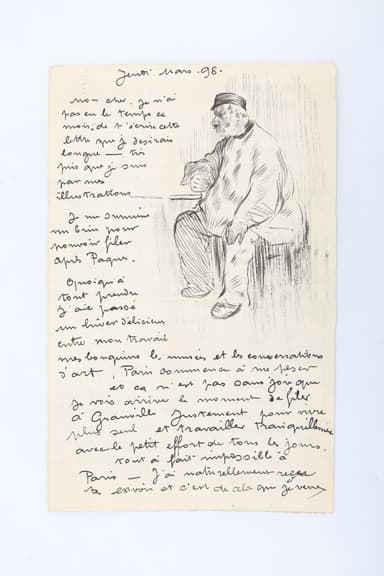 Jeudi Mars. 98.
Mon cher, je n'ai
pas eu le temps ce
mois, de t'écrire cette
lettre que je désirais
longue —
pis que je suis
par mes
illustrations
Je me
un brin pour
pouvoir filer
après Paques.
Quoiqu'à
tout prendre
j'aie passé
un hiver délicieux
entre mon travail
mes bouquins les musées et les conversations
d'art, Paris commence à me peser
et ça n'est pas sans joie que
je vois arriver le moment de filer
à Granville justement pour vivre
plus seul et travailler tranquillement
avec le petit effort de tous les jours.
tout à fait impossible à
Paris — J'ai naturellement reçu
et c'est de cela que je veux